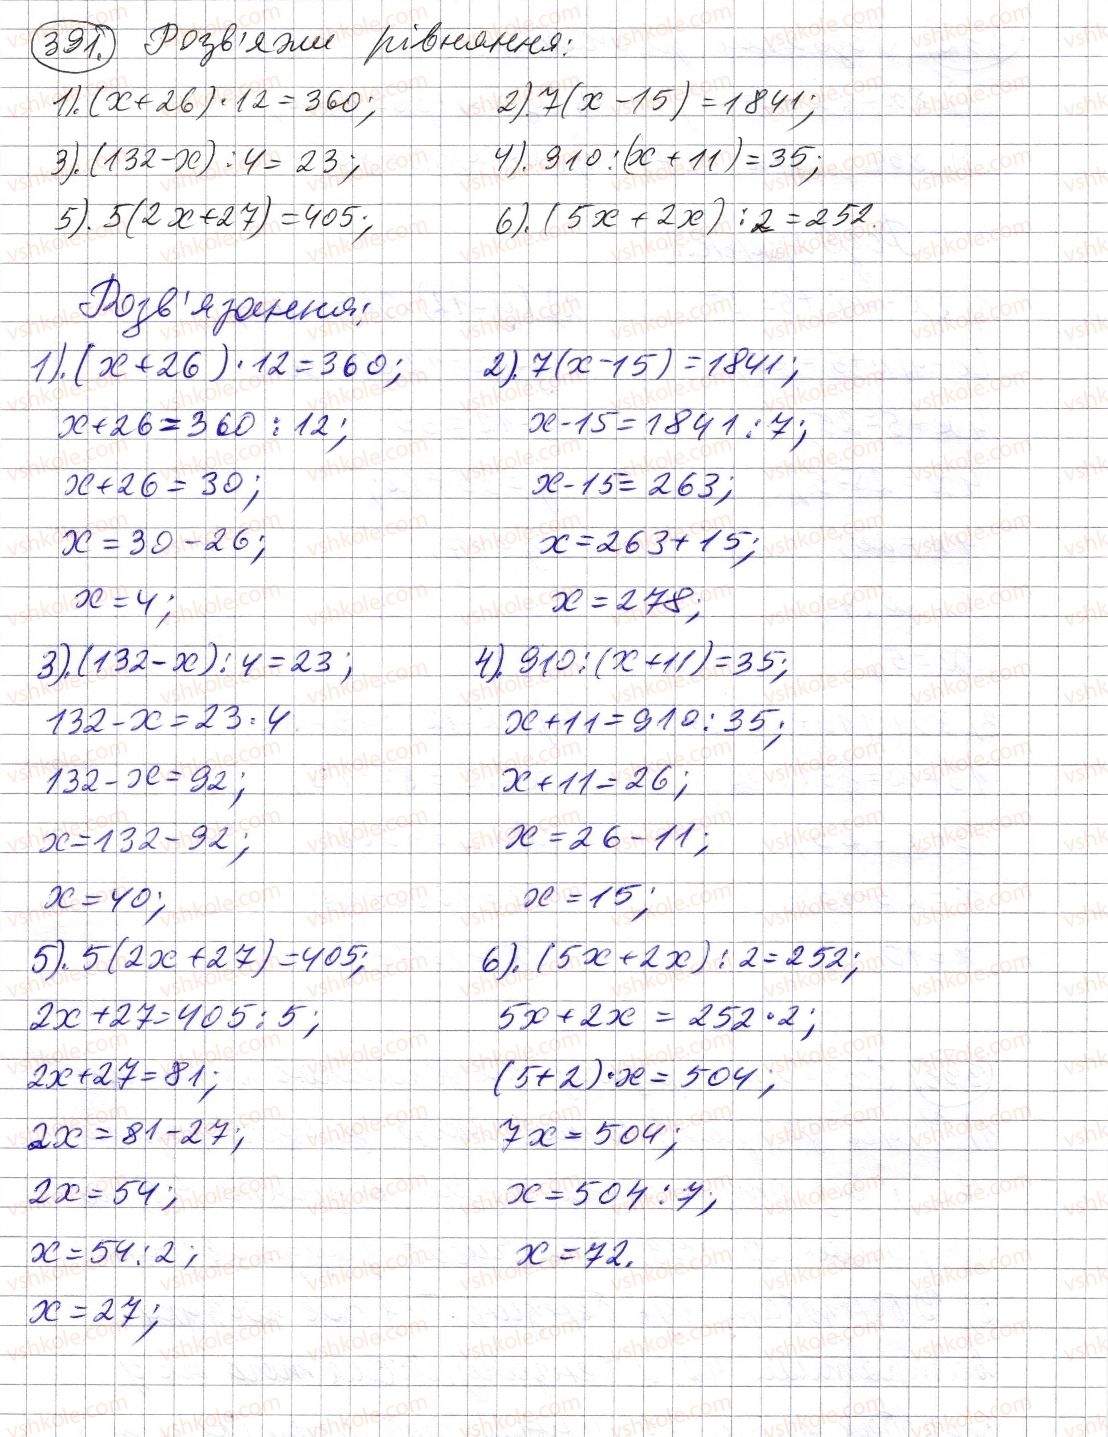 391. Розв'яжи рівняння:
1). (x+26)·12=360; 2). 7(x-15)=1841;
3). (132-x):4=23; 4). 910:(x+11)=35;
5). 5(2x+27)=405; 6). (5x+2x):2=252.
Розв'язання:
1). (x+26)·12=360;
x+26=360:12;
x+26=30;
x=30-26;
x=4;
2). 7(x-15)=1841;
x-15=1841:7;
x-15=263;
x=263+15;
x=278;
3). (132-x):4=23;
132-x=23·4
132-x=92;
x=132-92;
x=40;
4). 910:(x+11)=35;
x+11=910:35;
x+11=26;
x=26-11;
x=15;
5). 5(2x+27)=405;
2x+27=405:5;
2x+27=81;
2x=81-27;
2x=54;
x=54:2;
x=27;
6). (5x+2x):2=252;
5x+2x=252·2;
(5+2)·x=504;
7x=504;
x=504:7;
x=72.